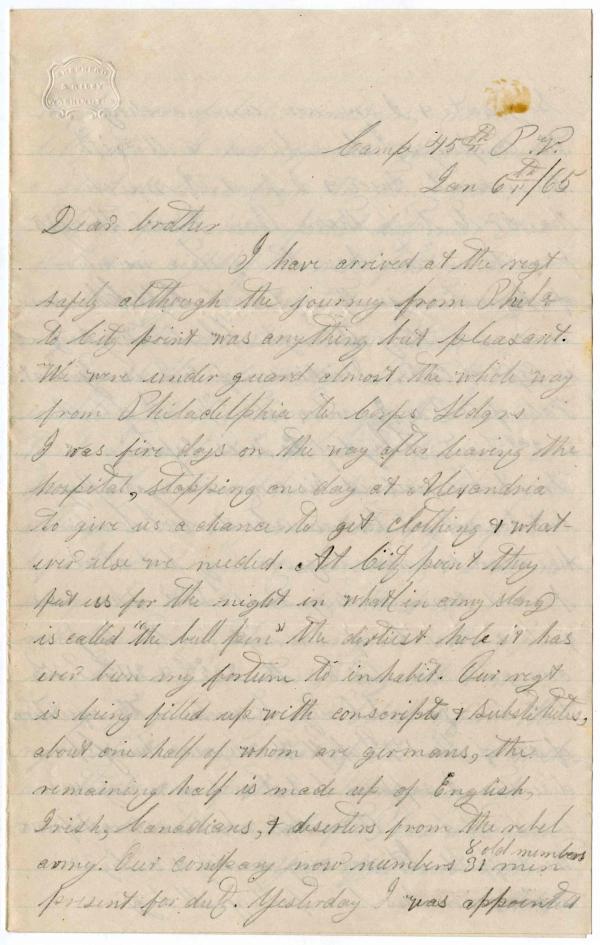 Camp 45th P.V.
Jan 6th/65
Dear brother
I have arrived at the regt
safely although the journey from Phila
to City point was anything but pleasant.
We were under guard almost the whole way
from Philadelphia to Corps Hdqrs
I was five days on the way after leaving the
hospital, stopping one day at Alexandria
to give us a chance to get clothing & what-
ever else we needed. At City point they
put us for the night in what in army slang
is called "the bull pen" the dirtiest hole it has
ever been my fortune to inhabit. Our regt
is being filled up with conscripts & substitutes,
about one half of whom are germans, the
remaining half is made up of English,
Irish, Canadians, & deserters from the rebel
army. Our company now numbers 31 men
8 old members
present for duty. Yesterday I was appointed